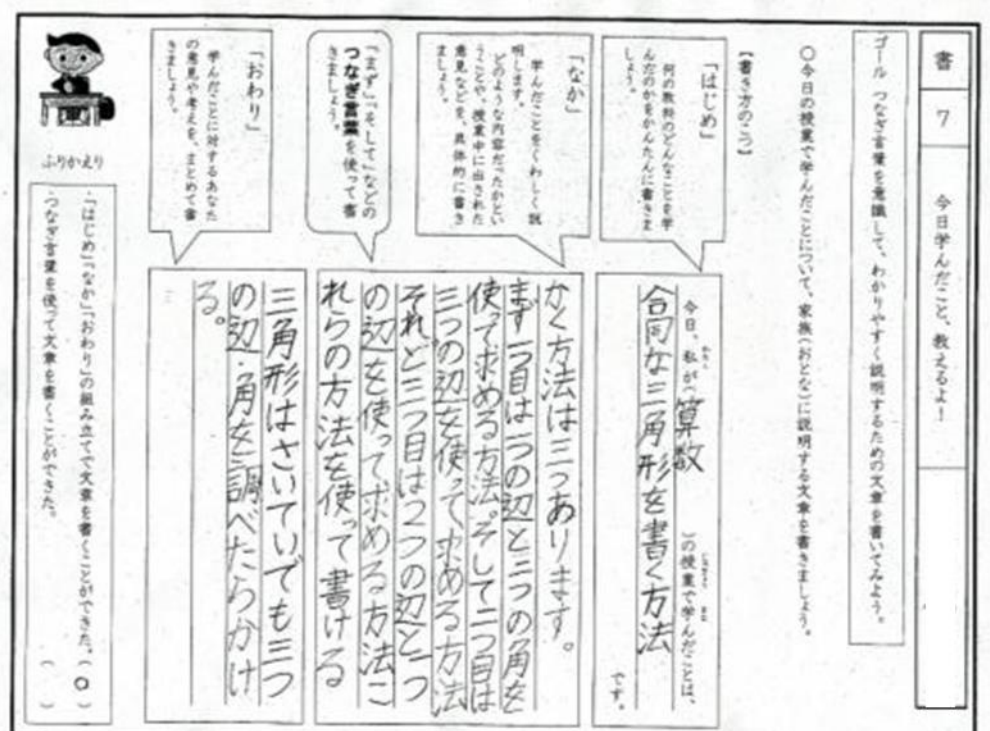 書
7
今日学んだこと、教えるよ!
ゴール つなぎ言葉を意識して、わかりやすく説明するための文章を書いてみよう。
○今日の授業で学んだことについて、家族(おとな)に説明する文章を書きましょう。
【書き方のこつ】
「はじめ」
何の教科のどんなことを学
んだのかをかんたんに書きま
しょう。
「なか」
学んだことをくわしく説
明します。
どのような内容だったかとい
うことや、授業中に出された
意見などを、具体的に書き
ましょう。
「まず」「そして」などの
つなぎ言葉を使って書
きましょう。
「おわり」
学んだことに対するあなた
の意見や考えを、まとめて書
きましょう。
今日、私が(算数)の授業で学んだことは、
合同な三角形を書く方法
です。
かく方法は三つあります。
まず一つ目は一つの辺と二つの角を
使って求める方法。そして二つ目は
三つの辺を使って求める方法
それと三つ目は2つの辺と一つ
の辺を使って求める方法こ
れらの方法を使って書ける
三角形はさいていでも三つ
の辺・角を調べたらかけ
る。
ふりかえり
・「はじめ」「なか」「おわり」の組み立てで文章を書くことができた。(○)
・つなぎ言葉を使って文章を書くことができた。( )